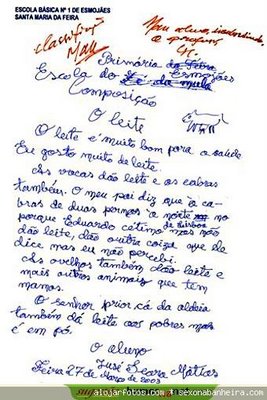 ESCOLA BÁSICA Nº 1 DE ESMOJÃES
SANTA MARIA DA FEIRA
Mau aluno
Primária da Feira
Escola de Esmojães
Composição
O leite
O leite é muito bom para a saúde
Eu gosto muito de leite.
As vacas dão leite e as cabras
também. O meu pai diz que à ca-
bras de duas pernas à norte no
porque Eduardo cétimo de lisboa mas não
dão leite, dão outra coiza que ele
dice mas eu não percebi.
As ovelhas também dão leite e
mais outros animais que tem
mamas.
O senhor prior cá da aldeia
também dá leite aos pobres mas
é em pó.
O aluno
José Seara Matias
Feira 27 de Março de 2003
alojarfotos.com sexonabanheira.com